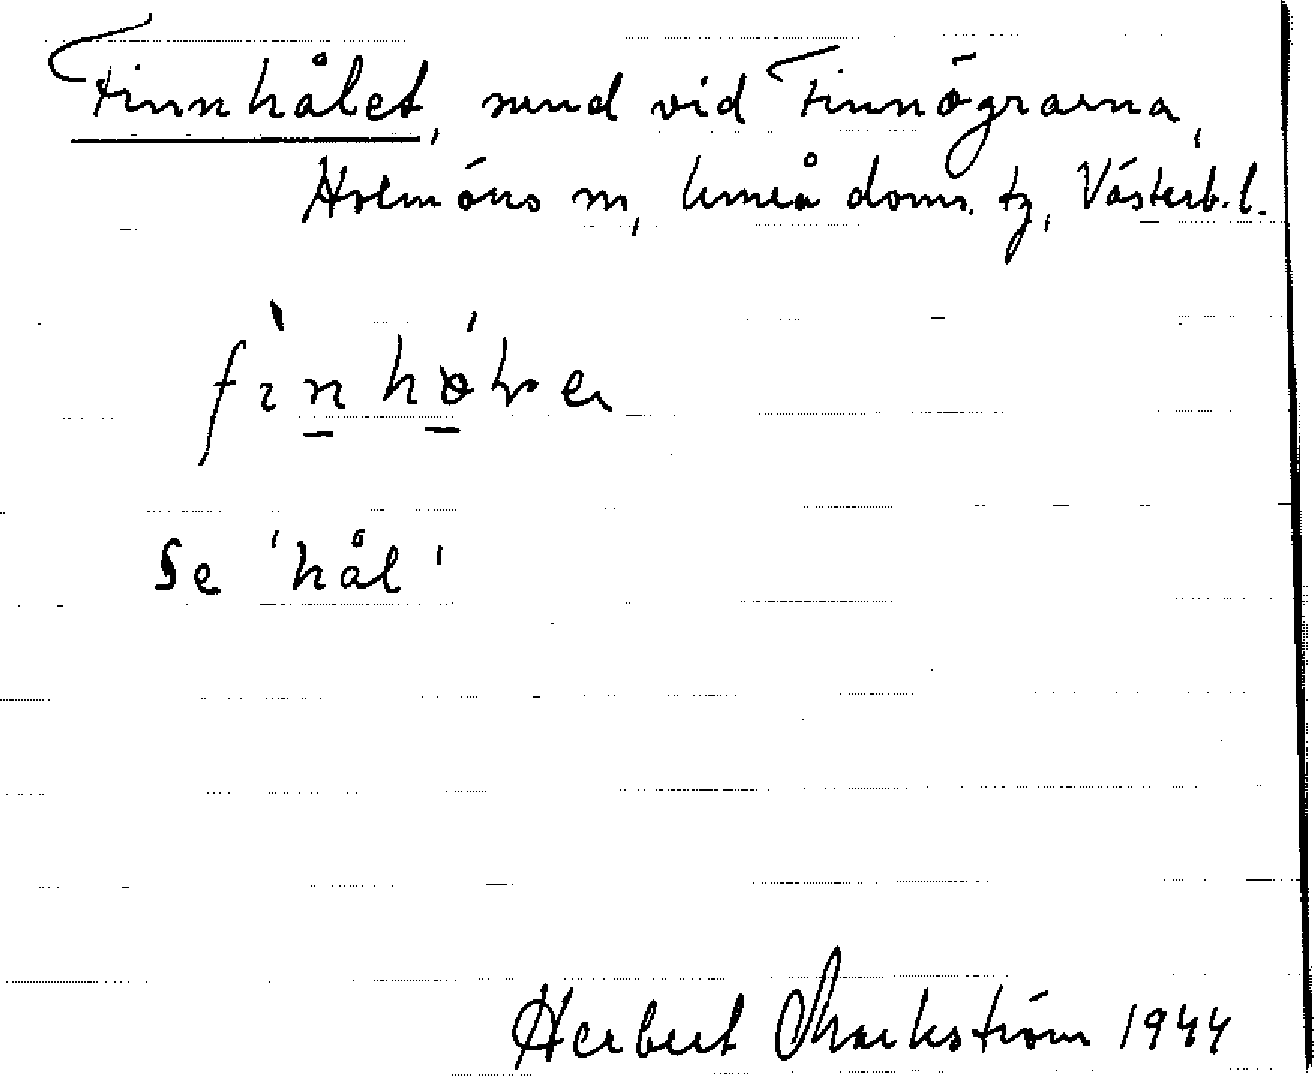 Finnhålet, sund vid Finnögrarna,
Holmöns sn, Umeå doms. tg, Västerb. l.
Se 'hål'
Herbert Markström 1944